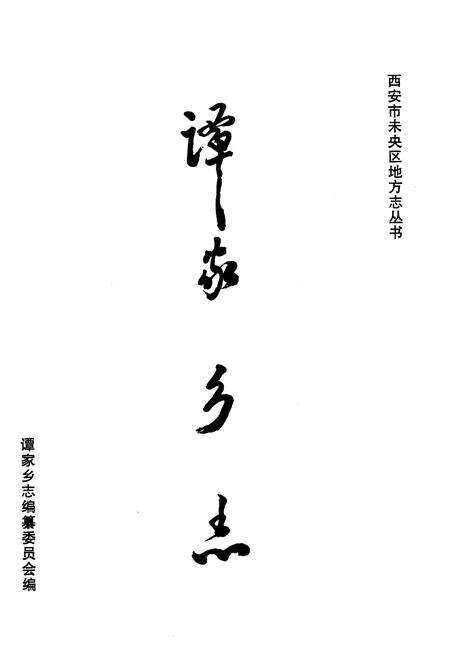 西安市未央区地方志丛书
谭家乡志
谭家乡志编纂委员会编